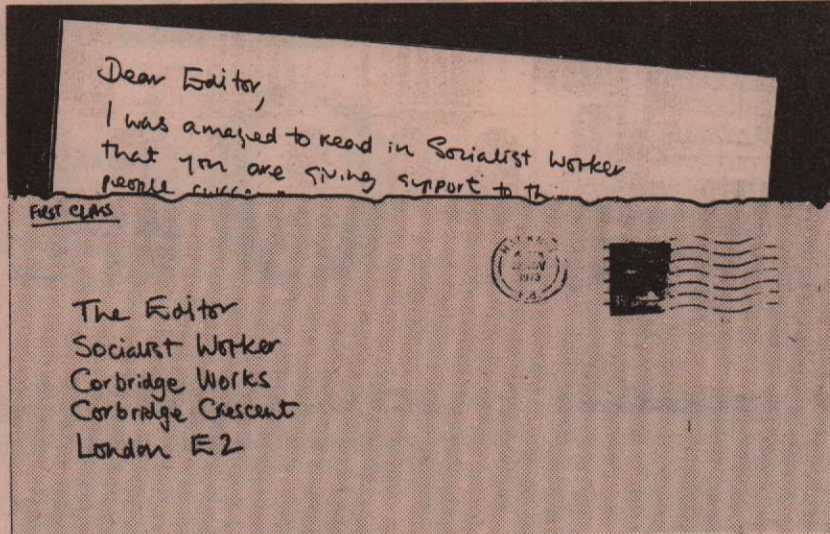 Dear Editor,
I was amazed to read in Socialist Worker
that you are giving support to th
people
FIRST CLASS
HACKNEY
1973
The Editor
Socialist Worker
Corbridge Works
Corbridge Crescent
London E2